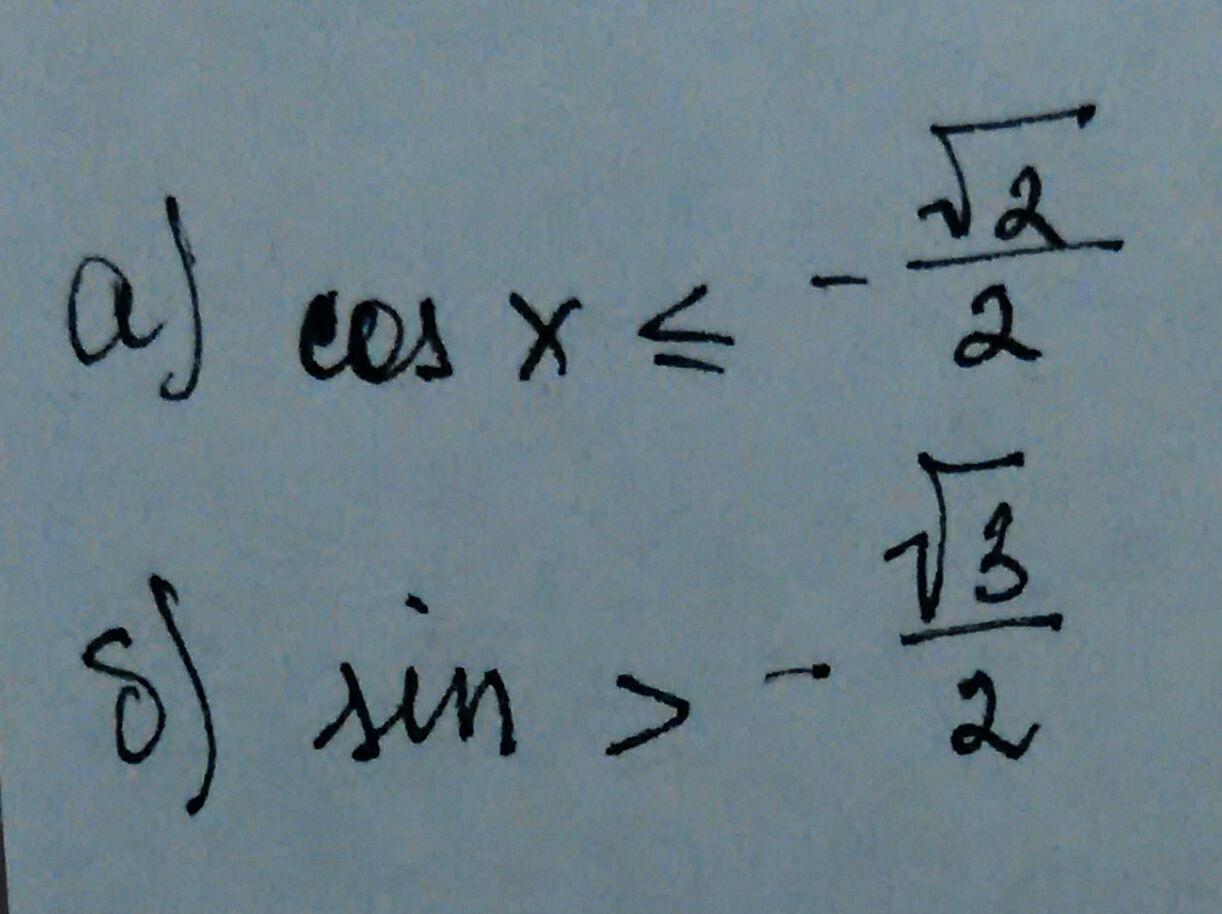 а) cos x ≤ -√2/2
б) sin > -√3/2